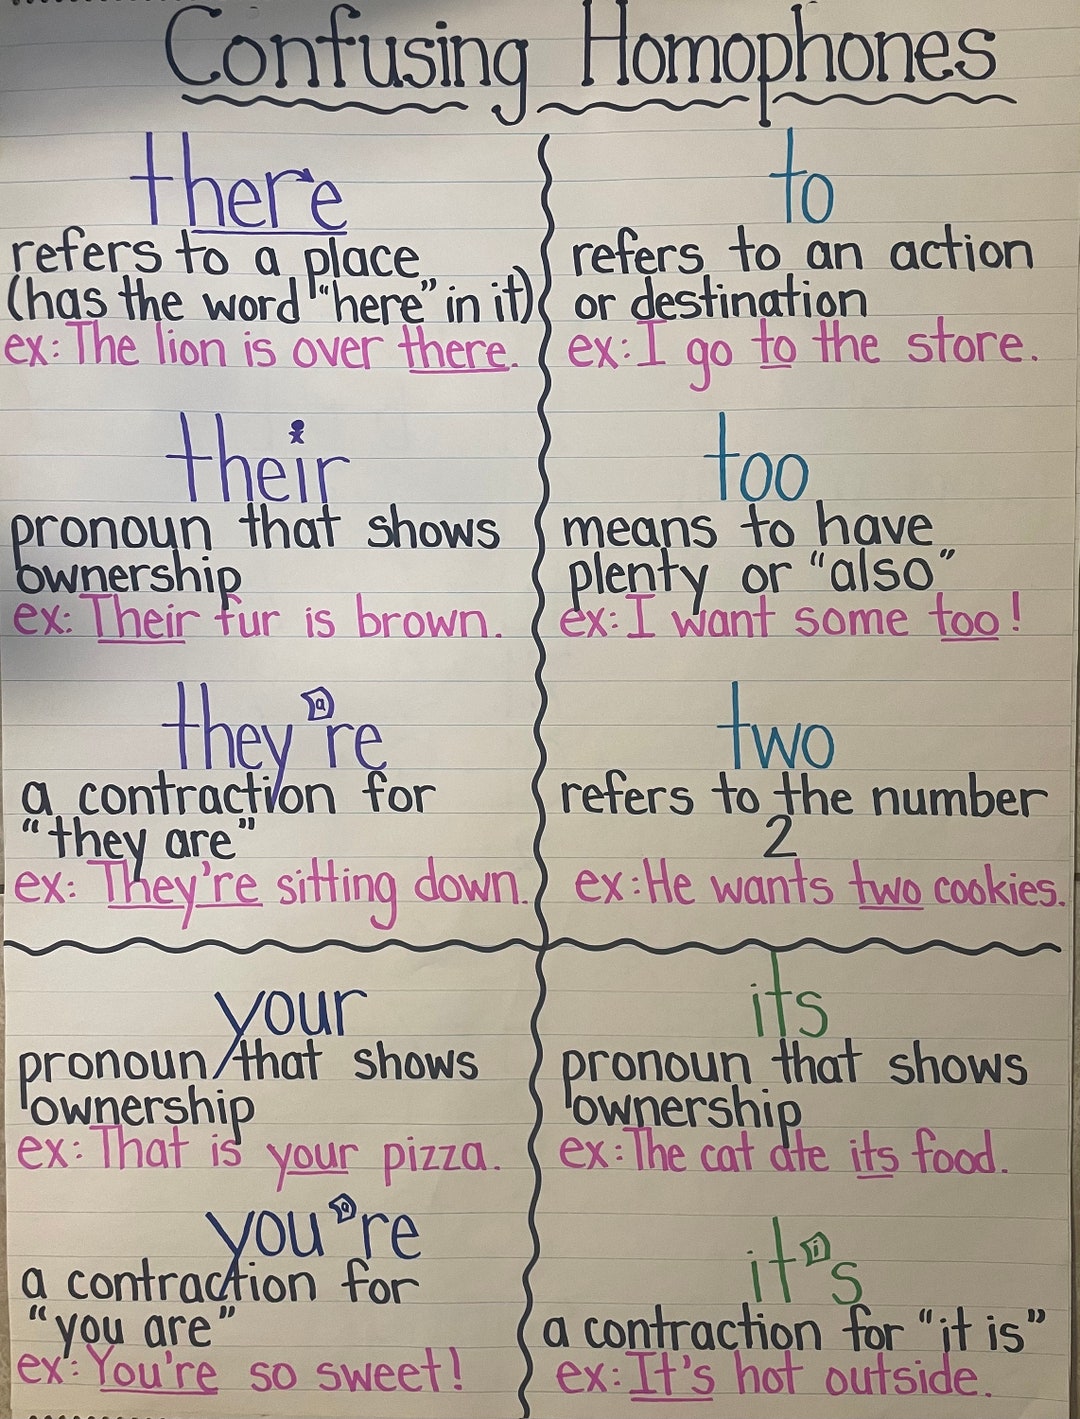 Confusing Homophones
there
refers to a place
(has the word "here" in it)
ex: The lion is over there.
their
pronoun that shows
ownership
ex: Their fur is brown.
they're
a contraction for
"they are"
ex: They're sitting down.
to
refers to an action
or destination
ex: I go to the store.
too
means to have
plenty or "also"
ex: I want some too!
two
refers to the number
2
ex: He wants two cookies.
your
pronoun that shows
ownership
ex: That is your pizza.
you're
a contraction for
"you are"
ex: You're so sweet!
its
pronoun that shows
ownership
ex: The cat ate its food.
it's
a contraction for "it is"
ex: It's hot outside.